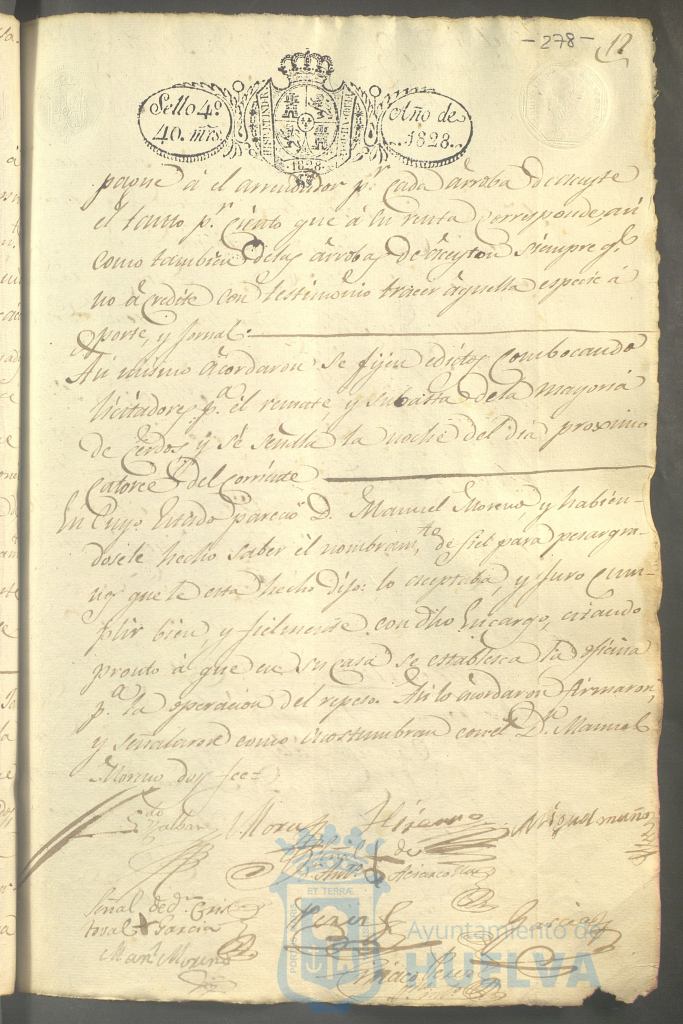 - 278 -
12
Sello 4º
40. mrs.
Año de
1828.
HISPANIAR
1828
pague á el arrendador pr. cada arroba de aceyte
el tanto pr. ciento que á su renta corresponde, asi
como tambien delas arrobas de aceyton siempre q.
no acredite con testimonio traer aquella especie á
porte, y jornal.
Asi mismo acordaron se fijen edictos combocando
licitadores pa. el remate y subasta dela mayoria
de Cerdos y se señala la noche del dia proximo
catorce del corriente
En cuyo estado pareció D. Manuel Moreno y habien-
dosele hecho saber el nombramto. de fiel para pesar gra-
nos que le esta hecho dijo: lo aceptaba, y juro cum-
plir bien y fielmente con dho encargo, estando
pronto á que en su casa se establesca la oficina
pa. la operacion del repeso. Asi lo acordaron firmaron,
y señalaron como acostumbran con el Dn. Manuel
Moreno doy fee=
Mora
Miguel muño
de
Señal de dn. Cris
toval X Garcia
Garcia
Manl. Moreno
ET TERRAE
Ayuntamiento de
HUELVA